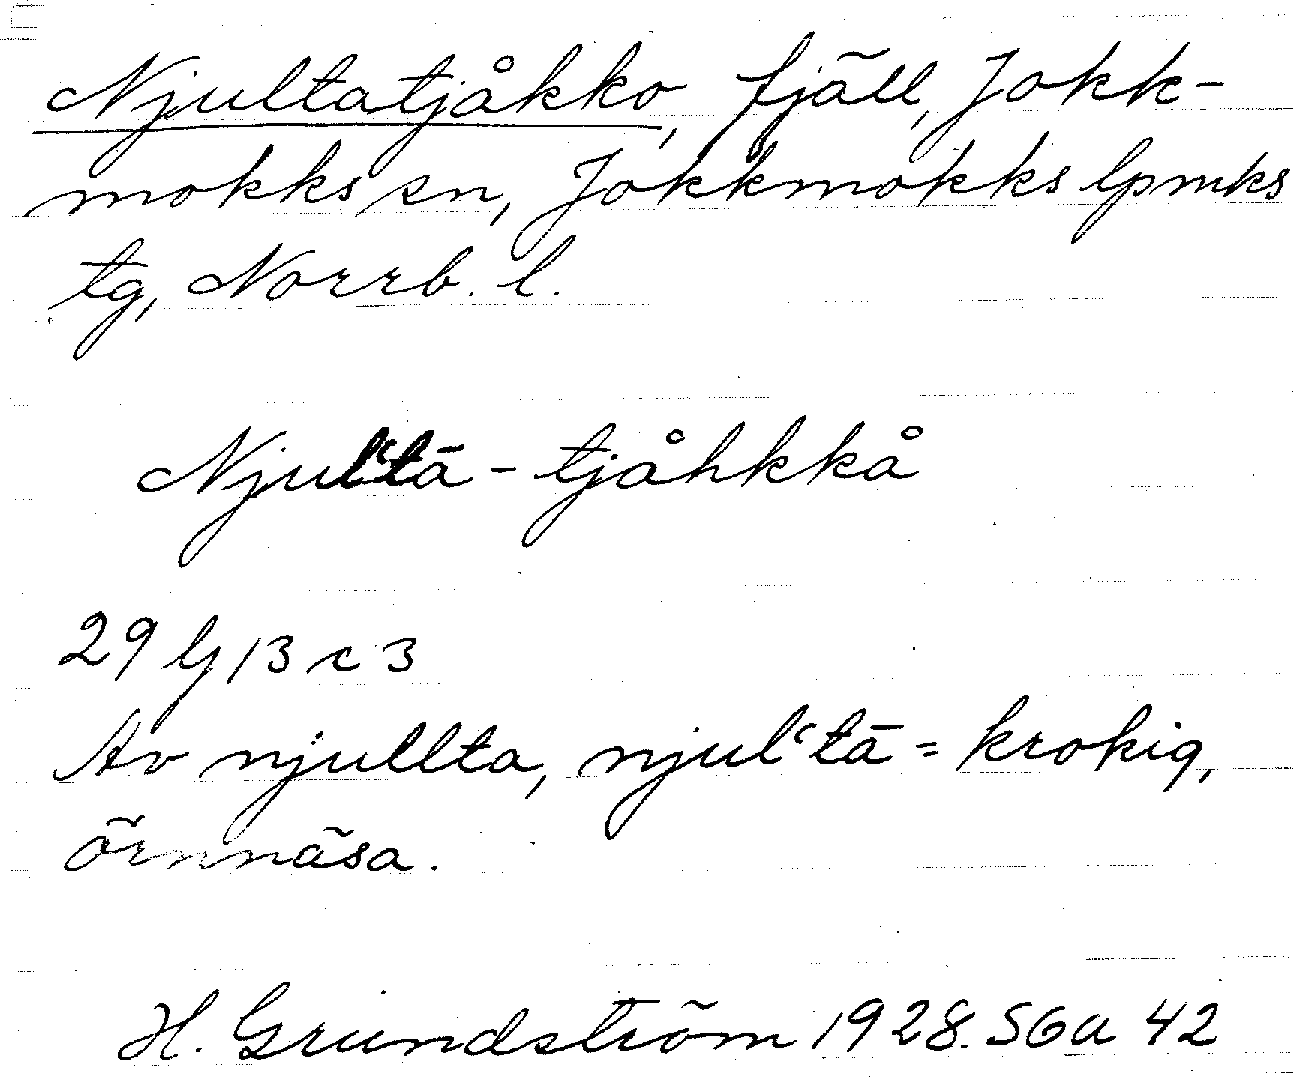 Njultatjåkko, fjäll, Jokk-
mokks sn, Jokkmokks lpmks
tg, Norrb. l.
Njul‘tā - tjåhkkå
29 G 13 c 3
Av njullta, njul‘tā = krokig,
örnnäsa.
H. Grundström 1928. SGa 42